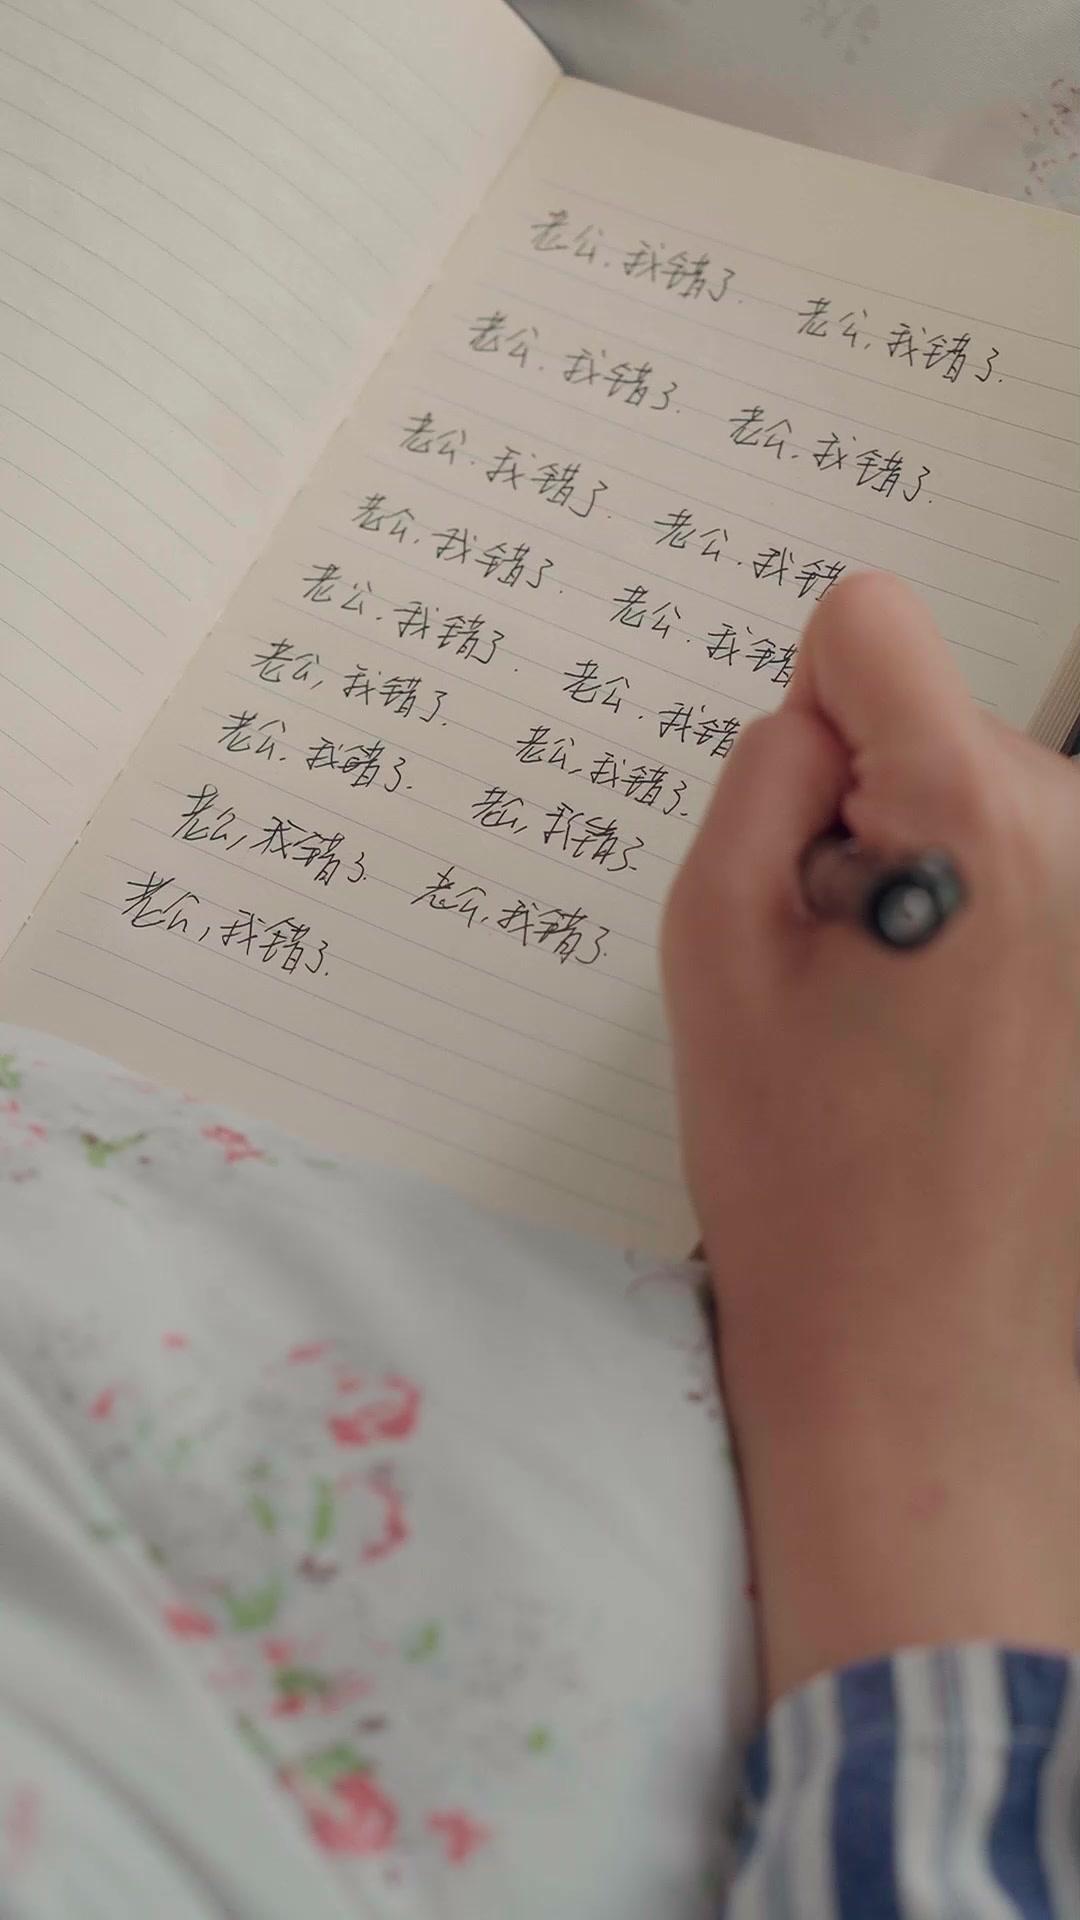 老公.我错了. 老公,我错了.
老公.我错了. 老公.我错了.
老公.我错了. 老公.我错
老公.我错了. 老公.我错
老公.我错了. 老公.我错
老公,我错了. 老公,我错了.
老公.我错了. 老公,我错了.
老公,我错了. 老公,我错了.
老公,我错了.